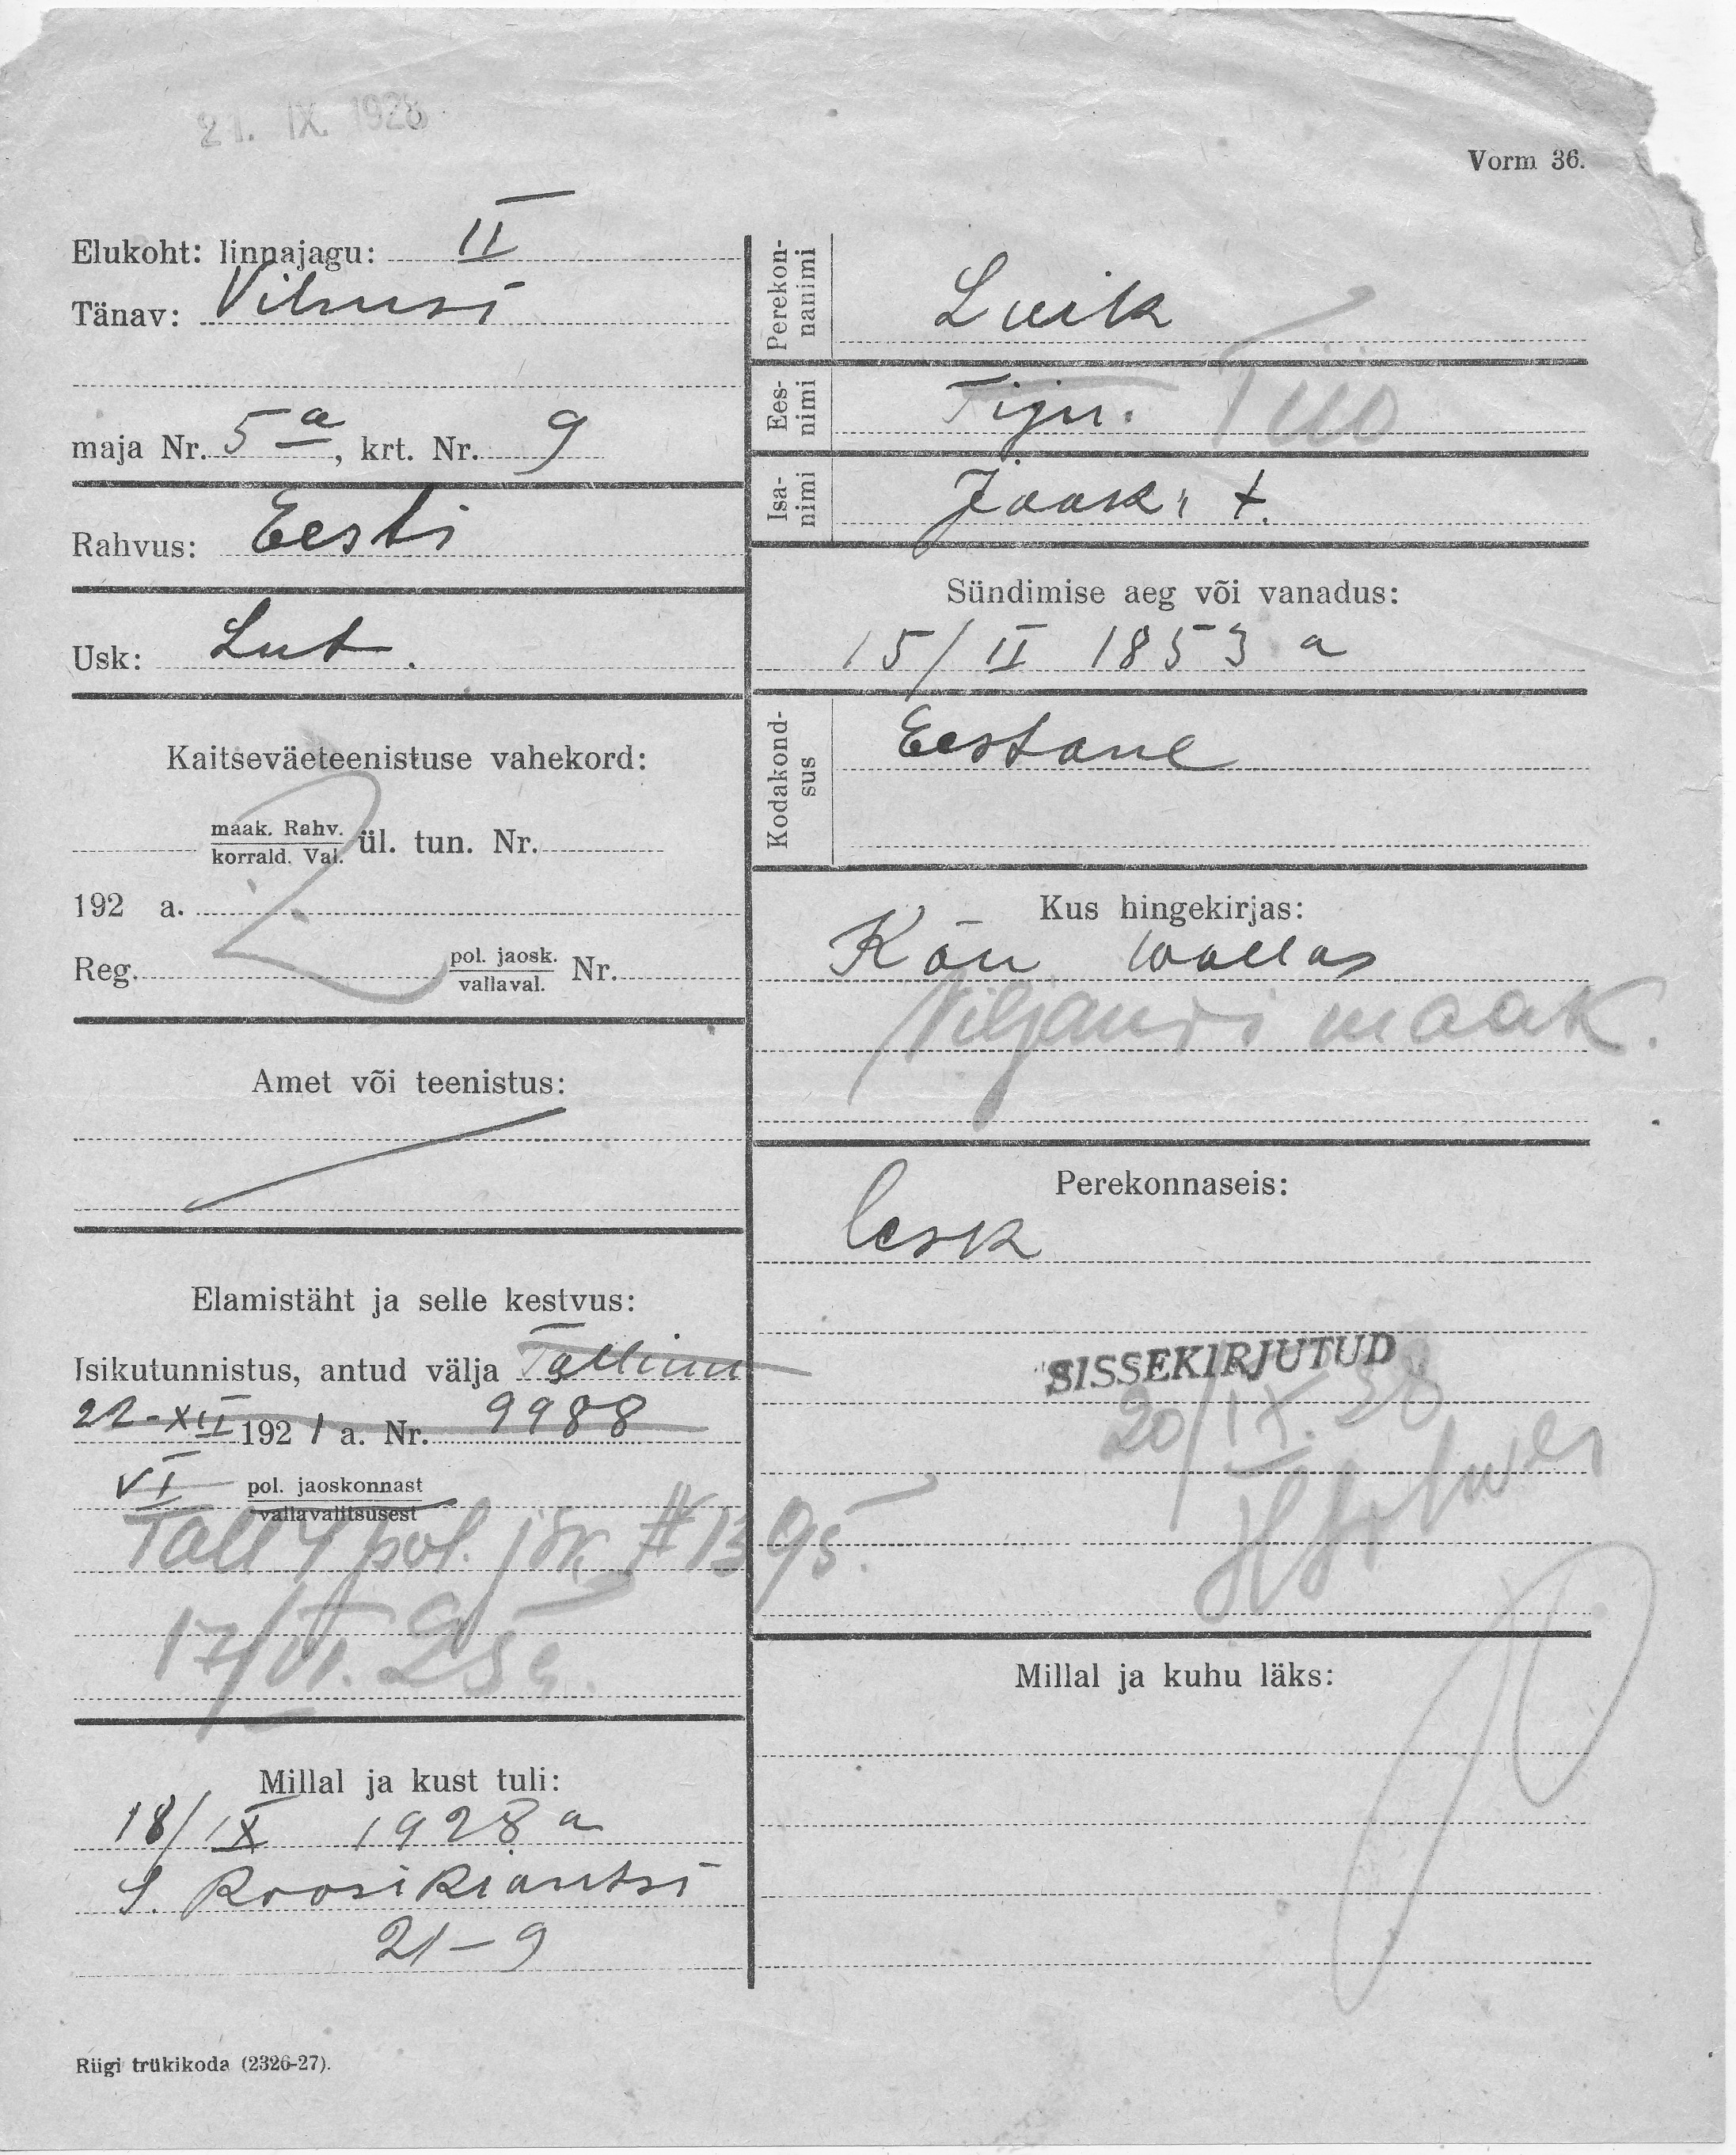 21. IX. 1928
Vorm 36.
Elukoht: linnajagu: II
Tänav: Vilmsi
maja Nr. 5 a, krt. Nr. 9
Rahvus: Eesti
Usk: Lut.
Kaitseväeteenistuse vahekord:
maak. Rahv.
korrald. Val. ül. tun. Nr.
192 a.
Reg. pol. jaosk.
vallaval. Nr.
Amet või teenistus:
Elamistäht ja selle kestvus:
Isikutunnistus, antud välja Tallinn
22-XII 1921 a. Nr. 9988
VI pol. jaoskonnast
vallavalitsusest
Tall 4 pol. jsk. # 1395.
17/VI. 25 a.
Millal ja kust tuli:
18/IX 1928 a
S. Roosikrantsi
21-9
Riigi trükikoda (2326-27).
Perekon-
nanimi Luik
Ees-
nimi Tiju. Tiio
Isa-
nimi Jaak. t.
Sündimise aeg või vanadus:
15/II 1853 a
Kodakond-
sus Eestane
Kus hingekirjas:
Kõu wallas
Viljandi maak.
Perekonnaseis:
lesk
SISSEKIRJUTUD
20/IX. 28
Millal ja kuhu läks: